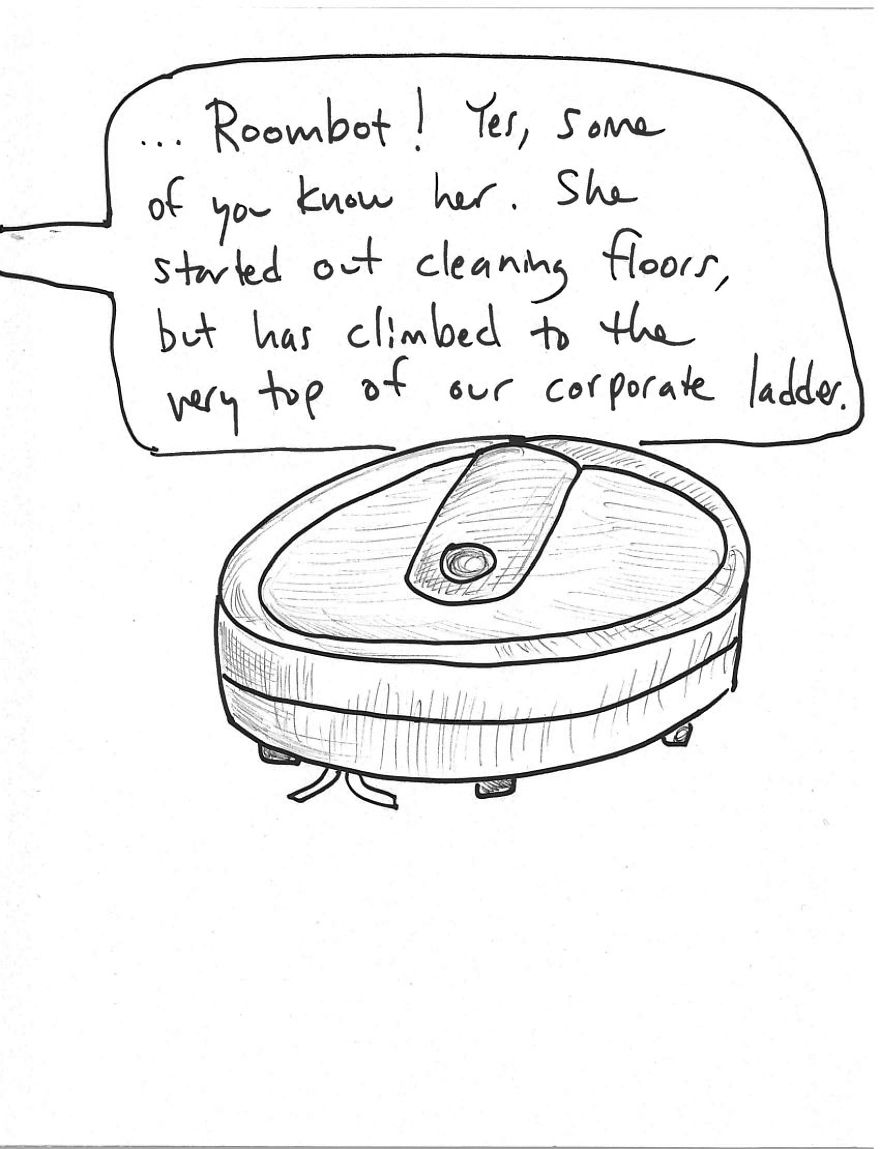 ... Roombot! Yes, some
of you know her. She
started out cleaning floors,
but has climbed to the
very top of our corporate ladder.